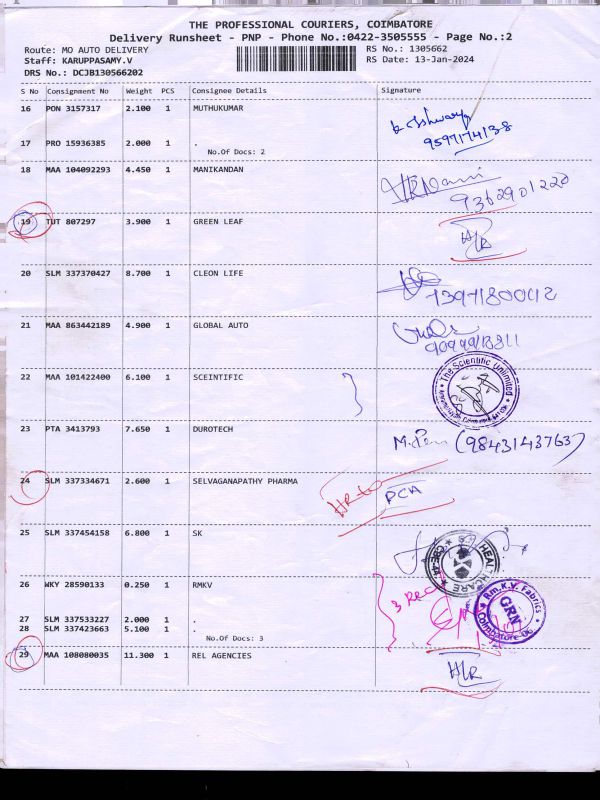 THE PROFESSIONAL COURIERS, COIMBATORE
Delivery Runsheet - PNP - Phone No.:0422-3505555 - Page No.:2
Route: MO AUTO DELIVERY RS No.: 1305662
Staff: KARUPPASAMY.V RS Date: 13-Jan-2024
DRS No.: DCJB130566202
S No Consignment No Weight PCS Consignee Details Signature
16 PON 3157317 2.100 1 MUTHUKUMAR
9597174138
17 PRO 15936385 2.000 1 .
No.Of Docs: 2
18 MAA 104092293 4.450 1 MANIKANDAN
9362901220
19 TUT 807297 3.900 1 GREEN LEAF
H/R
20 SLM 337370427 8.700 1 CLEON LIFE
21 MAA 863442189 4.900 1 GLOBAL AUTO
22 MAA 101422400 6.100 1 SCEINTIFIC
The Scientific Unlimited
23 PTA 3413793 7.650 1 DUROTECH
(9843143763)
24 SLM 337334671 2.600 1 SELVAGANAPATHY PHARMA
PCA
25 SLM 337454158 6.800 1 SK
HEALTHCARE
26 WKY 28590133 0.250 1 RMKV
3 Rec
R.m.K.V. Fabrics
GRN
Coimbatore
27 SLM 337533227 2.000 1 .
28 SLM 337423663 5.100 1 .
No.Of Docs: 3
29 MAA 108080035 11.300 1 REL AGENCIES
H/R